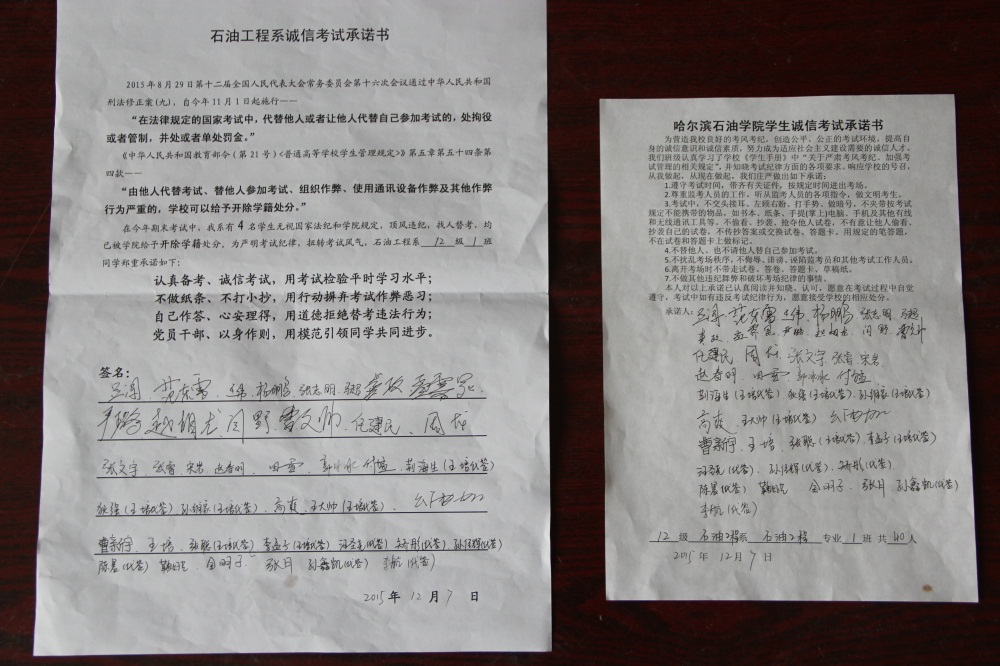 石油工程系诚信考试承诺书
2015年8月29日第十二届全国人民代表大会常务委员会第十六次会议通过中华人民共和国
刑法修正案(九),自今年11月1日起施行——
“在法律规定的国家考试中,代替他人或者让他人代替自己参加考试的,处拘役
或者管制,并处或者单处罚金。”
《中华人民共和国教育部令(第21号)<普通高等学校学生管理规定>》第五章第五十四条第
四款——
“由他人代替考试、替他人参加考试、组织作弊、使用通讯设备作弊及其他作弊
行为严重的,学校可以给予开除学籍处分。”
在今年期末考试中,我系有4名学生无视国家法纪和学院规定,顶风违纪,找人替考,均
已被学院给予开除学籍处分,为严明考试纪律,扭转考试风气,石油工程系 12 级 1 班
同学郑重承诺如下:
认真备考、诚信考试,用考试检验平时学习水平;
不做纸条、不打小抄,用行动摒弃考试作弊恶习;
自己作答、心安理得,用道德拒绝替考违法行为;
党员干部、以身作则,用模范引领同学共同进步。
签名:
范东雷 杨鹏 张志明
赵朝龙 闫野 曹文帅 任建民 周龙
张文宇 张雷 宋岩 赵春明 田雷 郭冰冰 付益 荆海生(王培代签)
张强(王培代签) 高爽 王大帅(王培代签)
曹新宇 王培 张聪(王培代签) 李孟子(王培代签)
陈寻(代签) 金羽子 张月 孙鑫凯(代签) 李航(代签)
2015 年 12 月 7 日
哈尔滨石油学院学生诚信考试承诺书
为营造我校良好的考风考纪,创造公平、公正的考试环境,提高自
身的诚信意识和诚信素质,努力成为适应社会主义建设需要的诚信人才。
我们班级认真学习了学校《学生手册》中“关于严肃考风考纪、加强考
试管理的相关规定”,并知晓考试纪律方面的各项要求。响应学校的号召,
从我做起,从现在做起,我们庄严做出如下承诺:
1.遵守考试时间,带齐有关证件,按规定时间进出考场。
2.尊重监考人员的工作,听从监考人员的各项指令,做文明考生。
3.考试中,不交头接耳、左顾右盼、打手势、做暗号,不夹带按考试
规定不能携带的物品,如书本、纸条、手提(掌上)电脑、手机及其他有线
和无线通讯工具等,不偷看、抄袭、抢夺他人试卷,不有意让他人偷看、
抄袭自己的试卷,不传抄答案或交换试卷、答题卡。用规定的笔答题,
不在试卷和答题卡上做标记。
4.不替他人、也不请他人替自己参加考试。
5.不扰乱考场秩序,不侮辱、诽谤、诬陷监考员和其他考试工作人员。
6.离开考场时不带走试卷、答卷、答题卡、草稿纸。
7.不做其他违纪舞弊和破坏考场纪律的事情。
本人对以上承诺已认真阅读并知晓、认可,愿意在考试过程中自觉
遵守,考试中如有违反考试纪律行为,愿意接受学校的相应处分。
承诺人: 范东雷 杨鹏 张志明
赵朝龙 闫野
任建民 周龙 张文宇 张雷 宋岩
赵春明 田雷 郭冰冰 付益
荆海生(王培代签) 张强(王培代签)
高爽 王大帅(王培代签)
曹新宇 王培 张聪(王培代签) 李孟子(王培代签)
陈寻(代签) 金羽子 张月 孙鑫凯(代签)
李航(代签)
12 级 石油工程系 石油工程 专业 1 班 共 40 人
2015 年 12 月 7 日